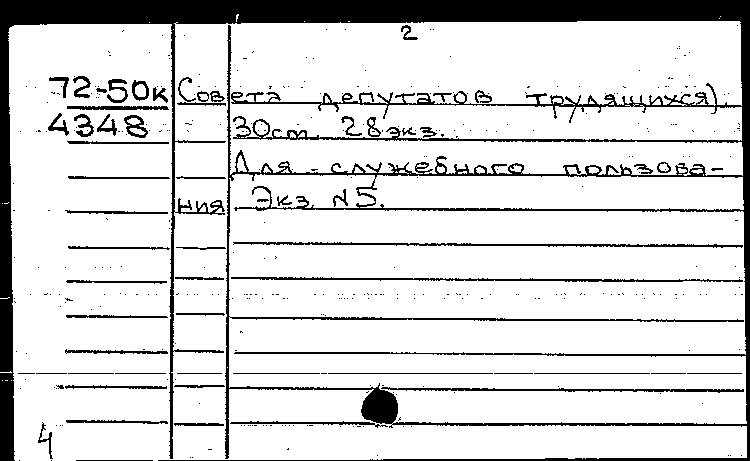 2
72-50к Совета депутатов трудящихся).
4348 30см. 28 экз.
Для служебного пользова-
ния Экз. N5.
4